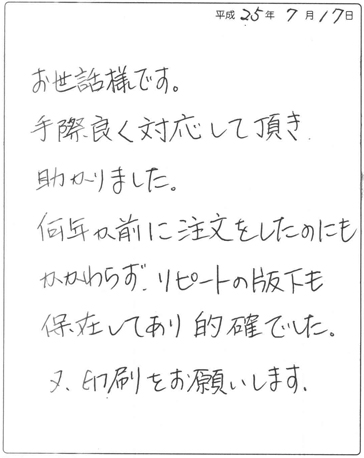 平成 25 年 7 月 17 日
お世話様です。
手際良く対応して頂き
助かりました。
何年か前に注文をしたのにも
かかわらず、リピートの版下も
保存してあり的確でした。
又、印刷をお願いします.